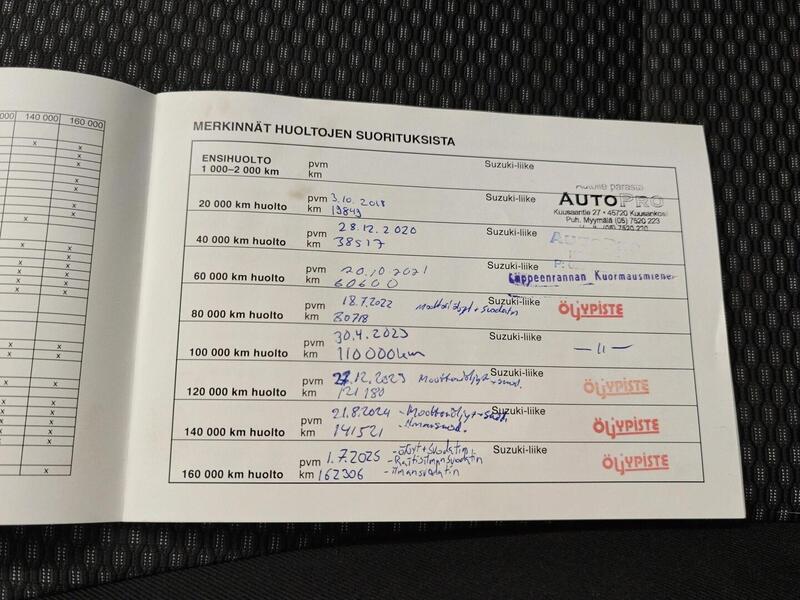 000 140 000 160 000
MERKINNÄT HUOLTOJEN SUORITUKSISTA
ENSIHUOLTO pvm Suzuki-liike
1 000–2 000 km km
20 000 km huolto pvm 3.10.2018 Suzuki-liike
km 19849
AUTOPRO
Kuusaantie 27 • 45720 Kuusankoski
Puh. Myymälä (05) 7520 223
(05) 7520 220
40 000 km huolto pvm 28.12.2020 Suzuki-liike
km 38517
60 000 km huolto pvm 20.10.2021 Suzuki-liike
km 60600
Lappeenrannan Kuormausmiehet
80 000 km huolto pvm 18.7.2022 Moottoriöljyt + suodatin Suzuki-liike
km 80718
ÖLJYPISTE
100 000 km huolto pvm 30.4.2023 Suzuki-liike
km 110000km
— 11 —
120 000 km huolto pvm 27.12.2023 Moottoriöljyt + suod. Suzuki-liike
km 121 180
ÖLJYPISTE
140 000 km huolto pvm 21.8.2024 - Moottoriöljyt + suod. Suzuki-liike
km 141521 - Ilmansuod.
ÖLJYPISTE
160 000 km huolto pvm 1.7.2025 - öljyt + suodatin Suzuki-liike
- Raitisilmansuodatin
km 162306 - ilmansuodatin
ÖLJYPISTE